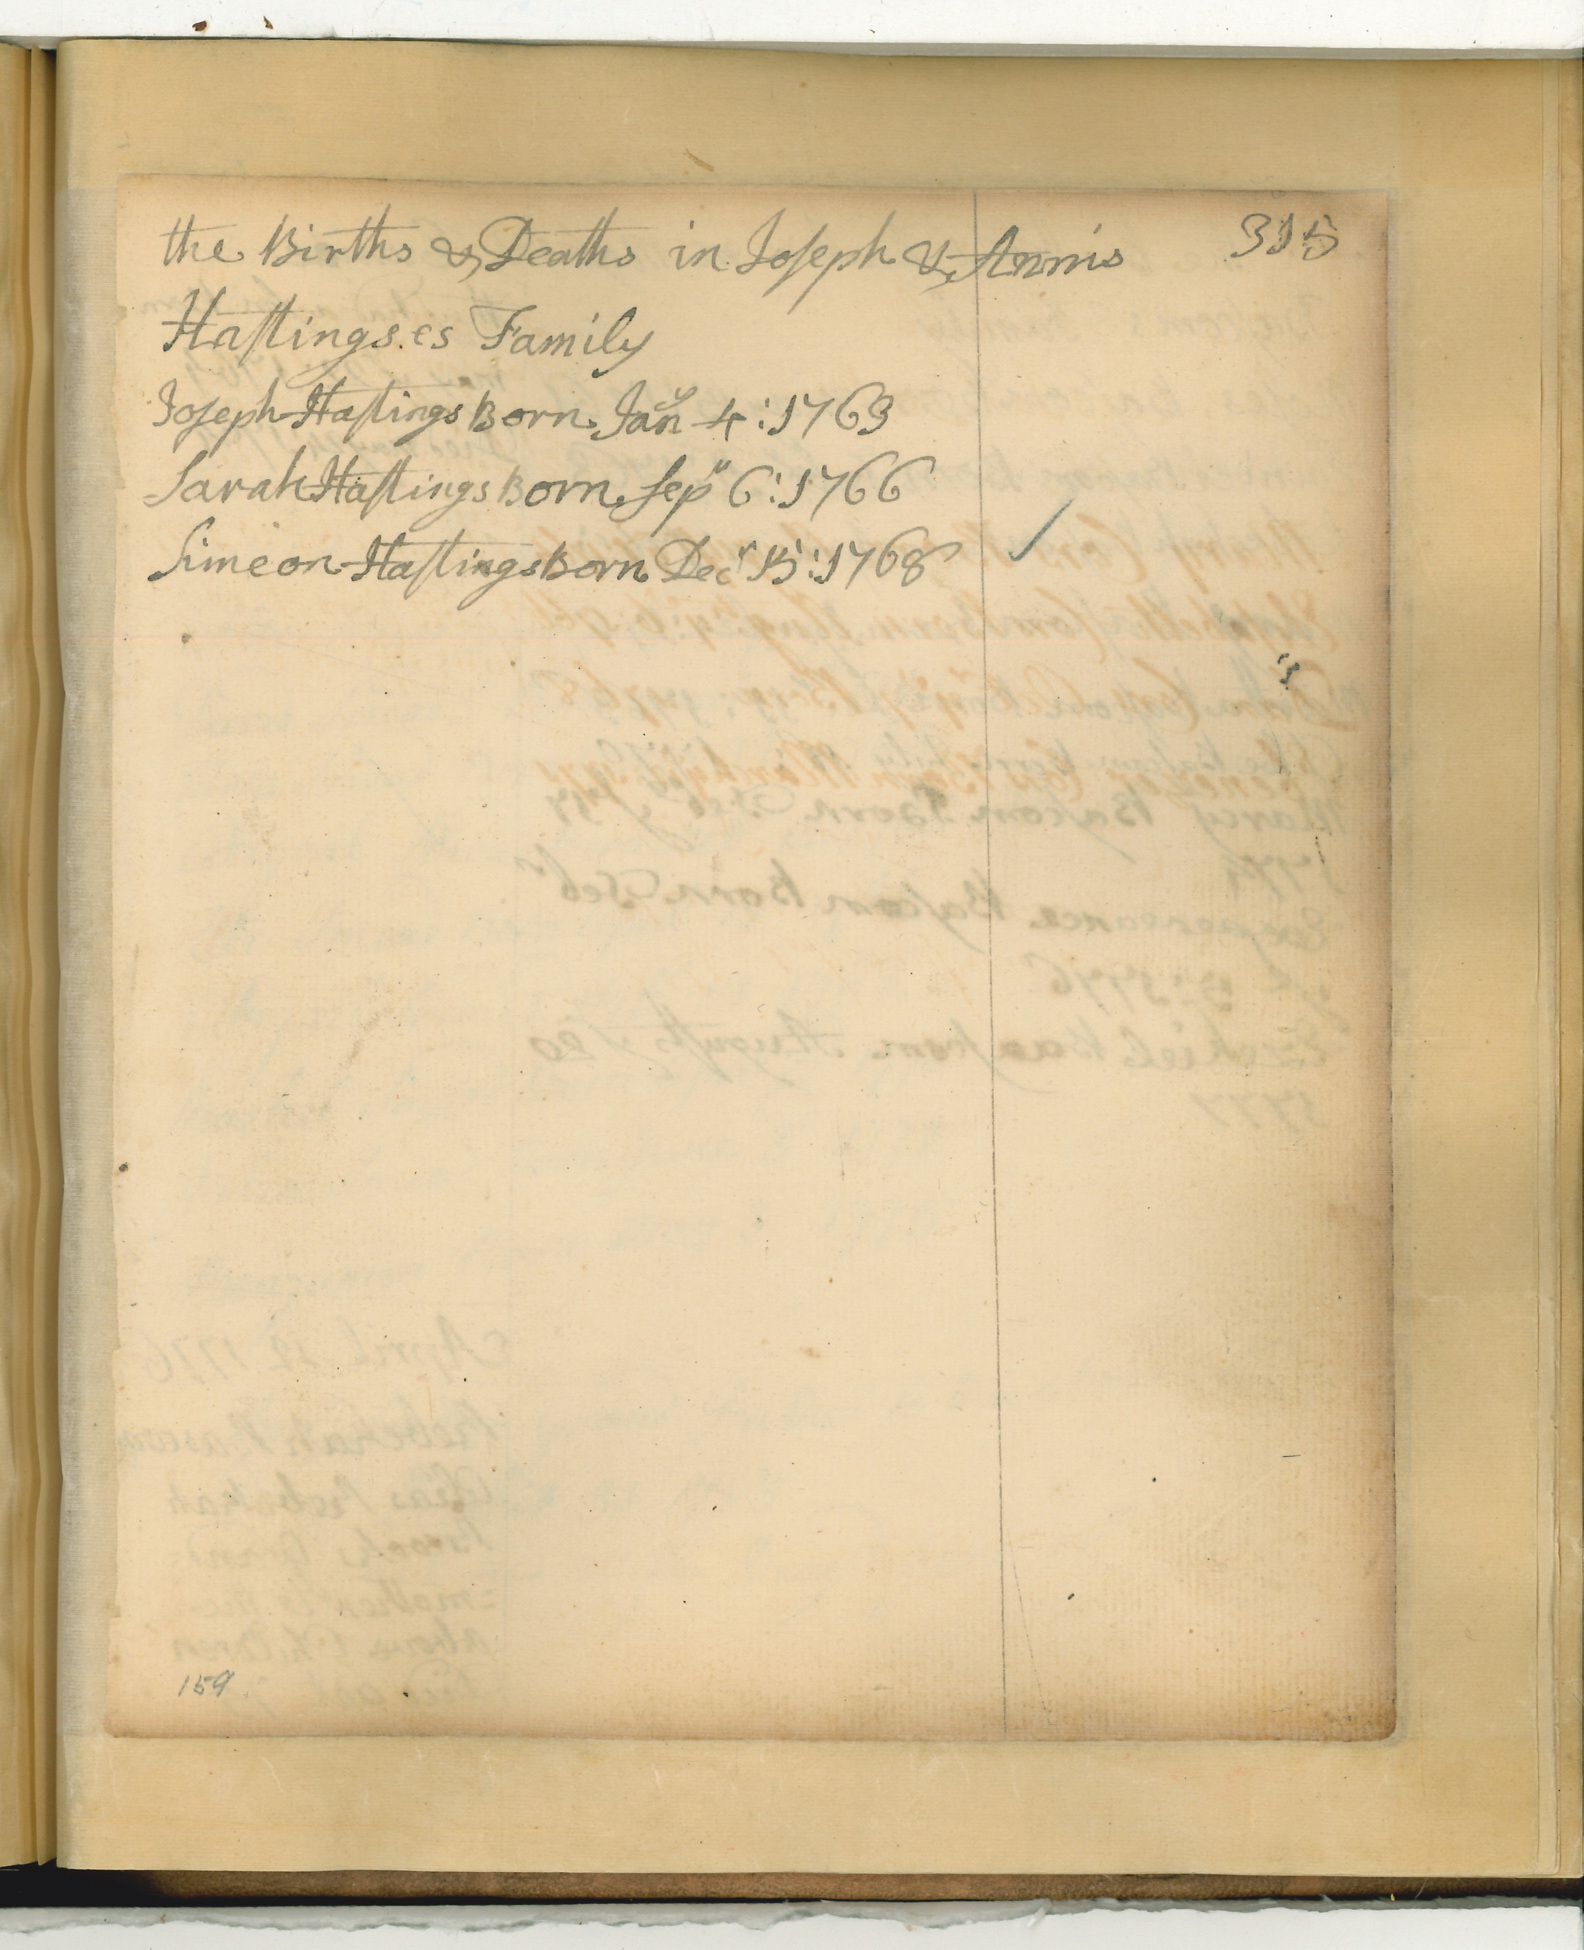 the Births & Deaths in Joseph & Annis 315
Hastings.es Family
Joseph Hastings Born Janʸ 4:1763
Sarah Hastings Born Sepᵗʳ 6:1766
Simeon Hastings Born Decʳ 15:1768
159